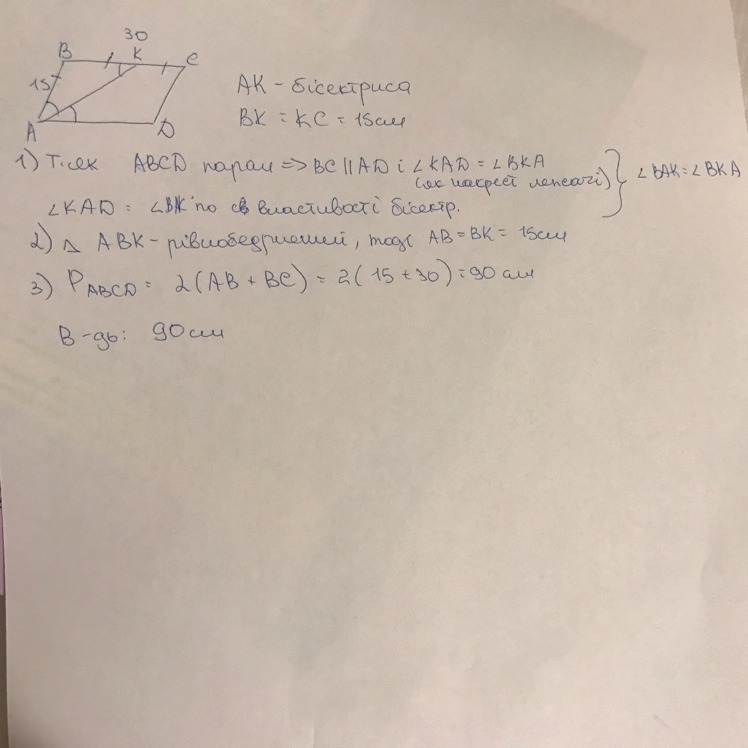 30
B K C
15
A D
AK - бісектриса
BK = KC = 15см
1) Т.як ABCD парал => BC || AD і ∠KAD = ∠BKA
(як накрест лежачі) } ∠BAK = ∠BKA
∠KAD = по св властивості бісектр.
2) △ ABK - рівнобедренний, тоді AB = BK = 15см
3) P ABCD = 2(AB + BC) = 2(15 + 30) = 90 см
В-дь: 90см